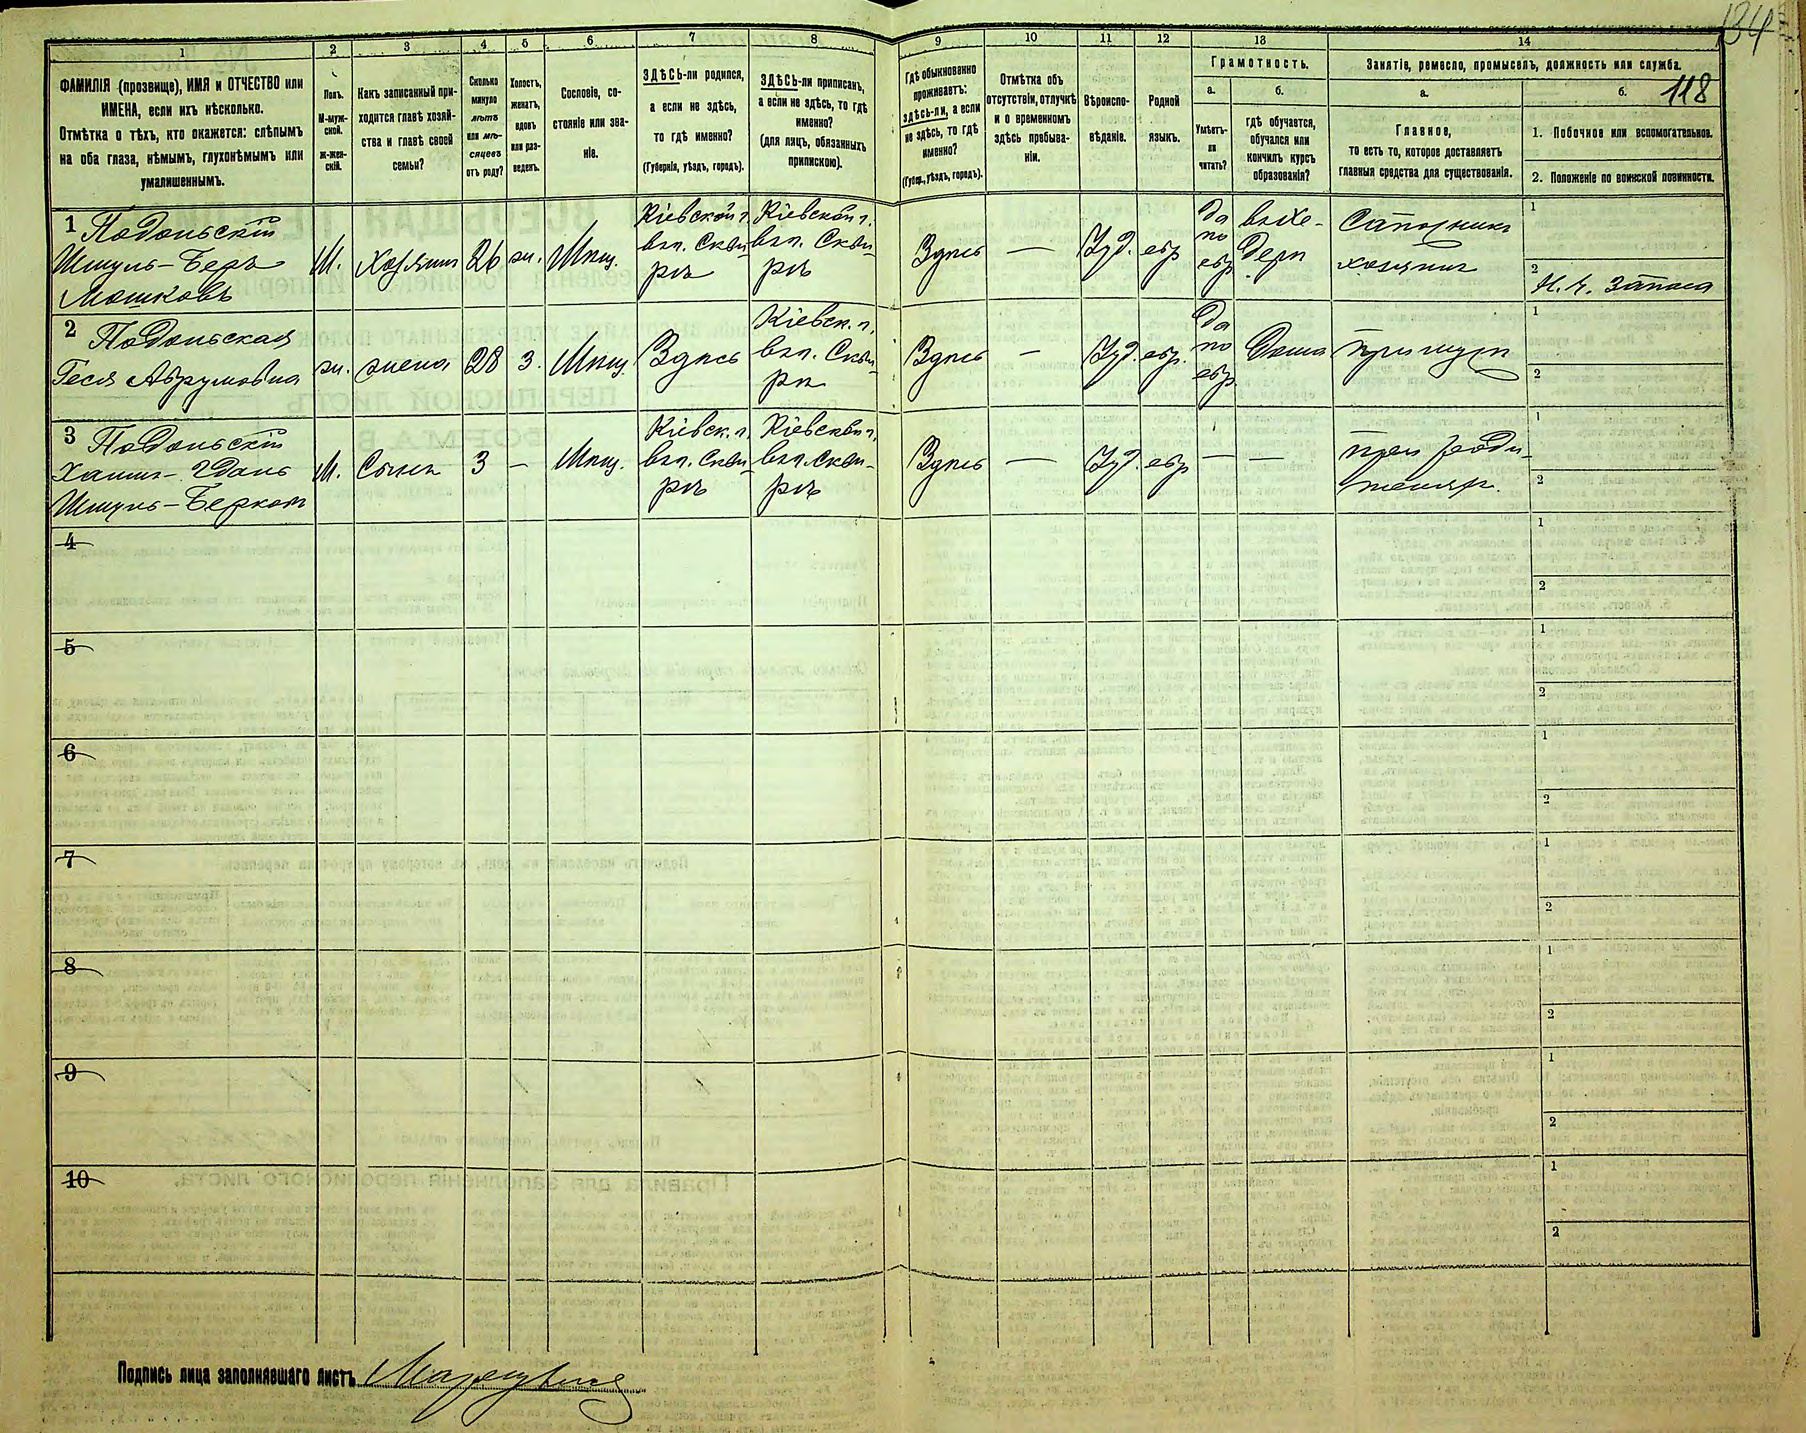 134
118
1
2
3
4
5
6
7
8
9
10
11
12
13
14
ФАМИЛІЯ (прозвище), ИМЯ и ОТЧЕСТВО или
ИМЕНА, если ихъ нѣсколько.
Отмѣтка о тѣхъ, кто окажется: слѣпымъ
на оба глаза, нѣмымъ, глухонѣмымъ или
умалишеннымъ.
Полъ.
М-муж-
ской.
Ж-жен-
скій.
Какъ записанный при-
ходится главѣ хозяй-
ства и главѣ своей
семьи?
Сколько
минуло
лѣтъ
или мѣ-
сяцевъ
отъ роду?
Холостъ,
женатъ,
вдовъ
или раз-
веденъ.
Сословіе, со-
стояніе или зва-
ніе.
ЗДѢСЬ-ли родился,
а если не здѣсь,
то гдѣ именно?
(Губернія, уѣздъ, городъ).
ЗДѢСЬ-ли приписанъ,
а если не здѣсь, то гдѣ
именно?
(для лицъ, обязанныхъ
припискою).
Гдѣ обыкновенно
проживаетъ:
здѣсь-ли, а если
не здѣсь, то гдѣ
именно?
(Губер., уѣздъ, городъ).
Отмѣтка объ
отсутствіи, отлучкѣ
и о временномъ
здѣсь пребыва-
ніи.
Вѣроиспо-
вѣданіе.
Родной
языкъ.
Грамотность.
а.
Умѣетъ-
ли
читать?
б.
гдѣ обучается,
обучался или
кончилъ курсъ
образованія?
Занятіе, ремесло, промыселъ, должность или служба.
а.
Главное,
то есть то, которое доставляетъ
главныя средства для существованія.
б.
1. Побочное или вспомогательное.
2. Положеніе по воинской повинности.
1 Подольскій
Шмуль-Беръ
Мошковъ
М.
Хозяинъ
26
ж.
Мѣщ.
Кіевской г.
вас. Сквы-
рѣ
Кіевской г.
вас. Сквы-
рѣ
Здѣсь
—
Іуд.
евр
да
по
евр
въ Хе-
дерѣ
Сапожникъ
хозяинъ
1
2
Н. ч. запаса
2 Подольская
Геся Абрумовна
ж.
жена
28
з.
Мѣщ.
Здѣсь
Кіевск. г.
вас. Сквы-
рѣ
Здѣсь
—
Іуд.
евр.
да
по
евр.
Дома
при мужѣ
1
2
3 Подольскій
Хаимъ-
Шмуль-Берковъ
М.
Сынъ
3
—
Мѣщ.
Кіевск. г.
вас. Сквы-
рѣ
Кіевской г.
вас. Сквы-
рѣ
Здѣсь
—
Іуд.
евр
—
—
при роди-
теляхъ.
1
2
4
1
2
5
1
2
6
1
2
7
1
2
8
1
2
9
1
2
10
1
2
Подпись лица заполнявшаго листъ